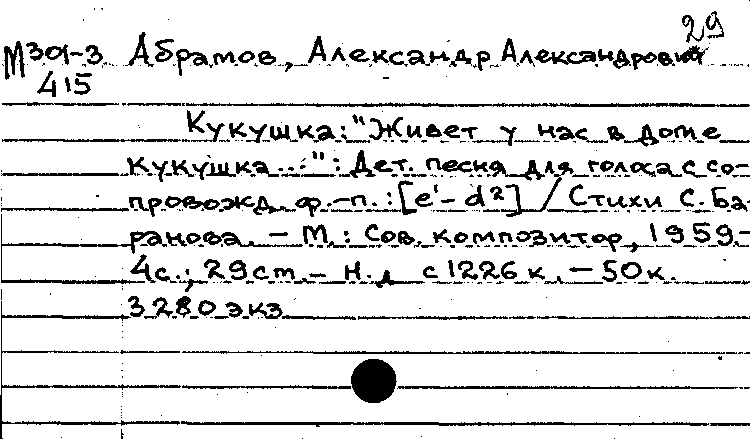 29
М301-3 Абрамов, Александр Александрович
415
Кукушка: "Живет у нас в доме
кукушка...": Дет. песня для голоса с со-
провожд. ф.-п.: [e¹-d²] / Стихи С. Ба-
ранова. - М.: Сов. композитор, 1959.-
4с.; 29cm. - Н.д. с1226к. - 50к.
3280 экз